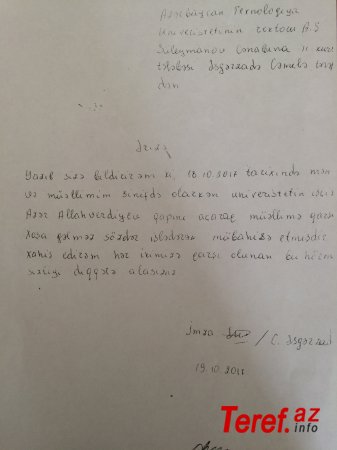 Azərbaycan Texnologiya
Universitetinin rektoru A.Ş
Suleymanov Cənabına II kurs
tələbəsi Əsgərzadə
dən
Ərizə
Yazıb sizə bildirirəm ki, 18.10.2017 tarixində mən
və müəllimim sinifdə olarkən universitetin işçisi
Azər Allahverdiyev qapını açaraq müəllimə qarşı
xoşa gəlməz sözlər işlədərək mübahisə etmişdir
Xahiş edirəm hər ikimizə qarşı olunan bu hörmət
sizliyi diqqətə alasınız
İmza / C. Əsgərzadə
19.10.2017
Teref.az
info